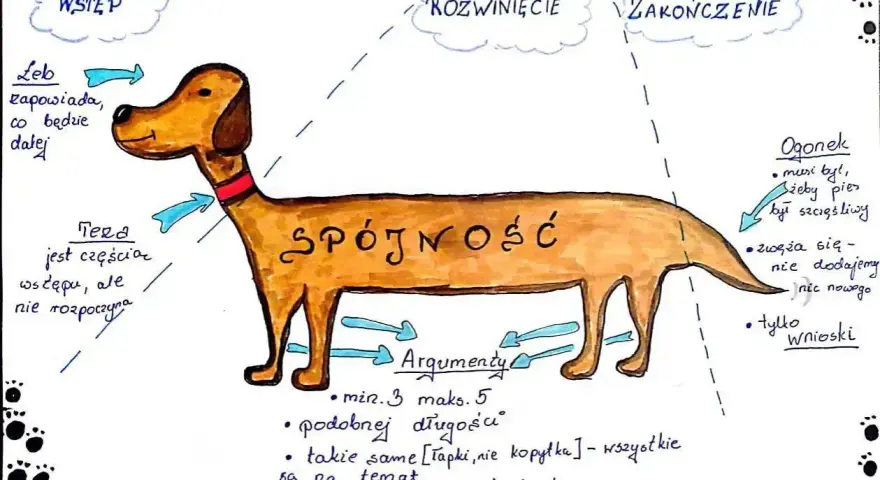 WSTĘP
ROZWINIĘCIE
ZAKOŃCZENIE
Łeb
zapowiada,
co będzie
dalej
Teza
jest częścią
wstępu, ale
nie rozpoczyna
SPÓJNOŚĆ
Argumenty
• min. 3 maks. 5
• podobnej długości
• takie same [łapki, nie kopytka] - wszystkie
są na temat
Ogonek
• musi być,
żeby pies
był szczęśliwy
• zwęża się -
nie dodajemy
nic nowego
• tylko
wnioski